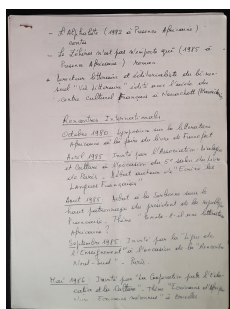 - L'Alphabète (1982 à Présence Africaine)
contes
- Le Zéhéros n'est pas n'importe qui (1985 à
Présence Africaine) roman
littéraire et
"Vie Littéraire" édité avec l'aide du
centre culturel Français à Nouakchott
Rencontres Internationales
Octobre 1980 Symposium sur la littérature
Africaine à la foire du livre de Francfort
Avril 1985 Invité par l'Association
et Culture à l'occasion du 5e salon du livre
de Paris. Débat autour de "Ecrire les
Langues Françaises"
Août 1985 Débat à la Sorbonne sous le
haut patronage du président de la république
Française. Thème "Existe-t-il une littérature
Africaine ?
Septembre 1985 Invité par la ligue de
l'Enseignement à l'occasion de la "Rencontre
Nord-Sud" - Paris.
Mai 1986 Invité par "La Coopération par l'Education
et la Culture". Thème "Ecrivains d'Afrique
" à Bruxelles